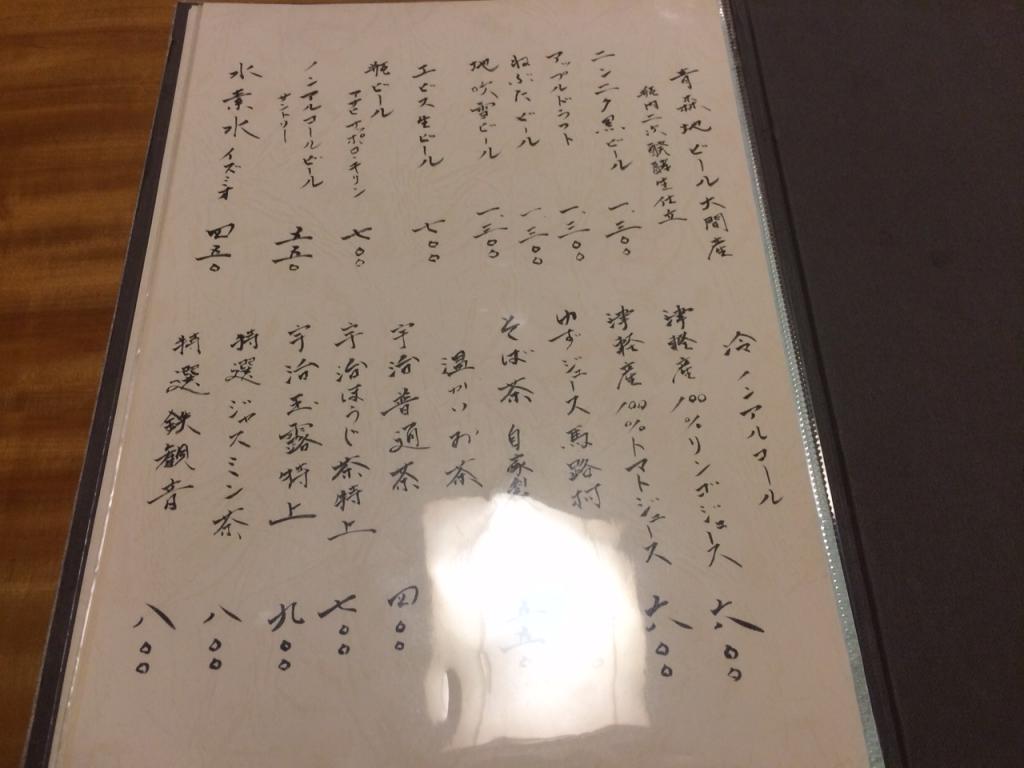 青森地ビール大間産
瓶内二次発酵生仕立
ニンニク黒ビール 一、三〇〇
アップルドラフト 一、三〇〇
ねぶたビール 一、三〇〇
地吹雪ビール 一、三〇〇
エビス生ビール 七〇〇
瓶ビール
アサヒ サッポロ キリン 七〇〇
ノンアルコールビール
サントリー 五五〇
水素水 イズミオ 四五〇
冷 ノンアルコール
津軽産100%リンゴジュース 六〇〇
津軽産100%トマトジュース 六〇〇
ゆずジュース 馬路村
そば茶 自家製 五五〇
温かいお茶
宇治普通茶 四〇〇
宇治ほうじ茶特上 七〇〇
宇治玉露特上 九〇〇
特選ジャスミン茶 八〇〇
特選鉄観音 八〇〇